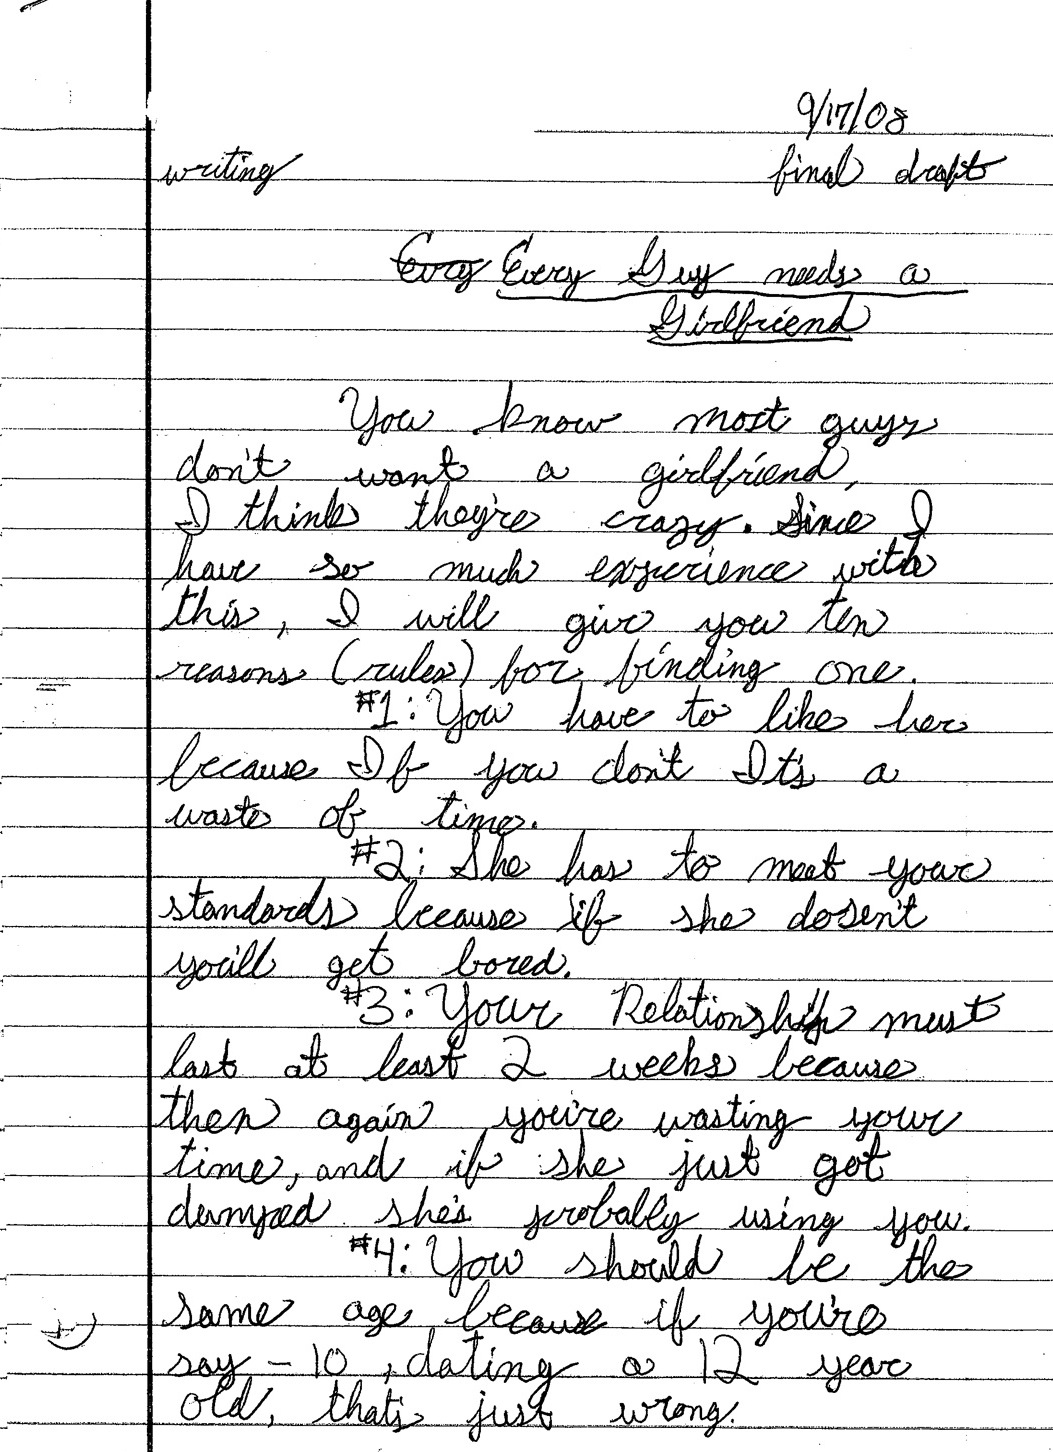 9/17/08
writing final draft
Evry Every Guy needs a
Girlfriend
You know most guys
don't want a girlfriend,
I think they're crazy. Since I
have so much experience with
this, I will give you ten
reasons (rules) for finding one.
#1: You have to like her
because If you don't It's a
waste of time.
#2: She has to meet your
standards because if she dosen't
you'll get bored.
#3: Your Relationship must
last at least 2 weeks because
then again you're wasting your
time, and if she just got
dumped she's probably using you.
#4: You should be the
same age because if you're
say - 10, dating a 12 year
old, that's just wrong.